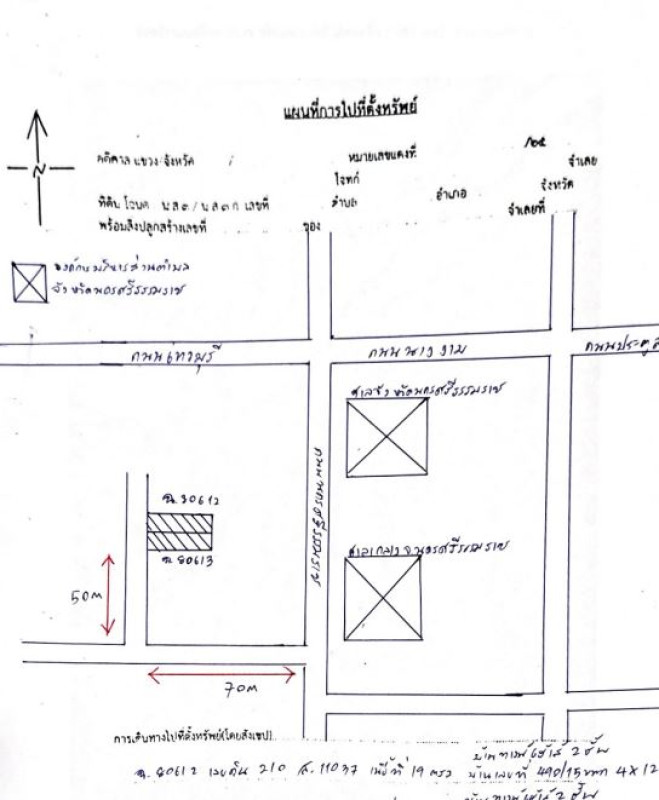 แผนที่การไปที่ตั้งทรัพย์
N
คดีศาล แขวง/จังหวัด หมายเลขแดงที่ /๒๕ จำเลย
โจทก์ จังหวัด
ที่ดิน โฉนด น.ส.๓/น.ส.๓ ก เลขที่ ตำบล อำเภอ จำเลยที่
พร้อมสิ่งปลูกสร้างเลขที่ ของ
องค์การบริหารส่วนตำบล
จังหวัดนครศรีธรรมราช
ถนน ถนนนางงาม ถนนประตู
ศาลจังหวัดนครศรีธรรมราช
ถนนนครศรีธรรมราช
ฉ.80612
ฉ.80613
ศาลากลางจ.นครศรีธรรมราช
50m
70m
การเดินทางไปที่ตั้งทรัพย์(โดยสังเขป)
2 ชั้น
ฉ. 80612 เลขดิน 210 ส. 11037 เนื้อที่ 19 ตรว บ้านเลขที่ 490/15 4x12
2 ชั้น